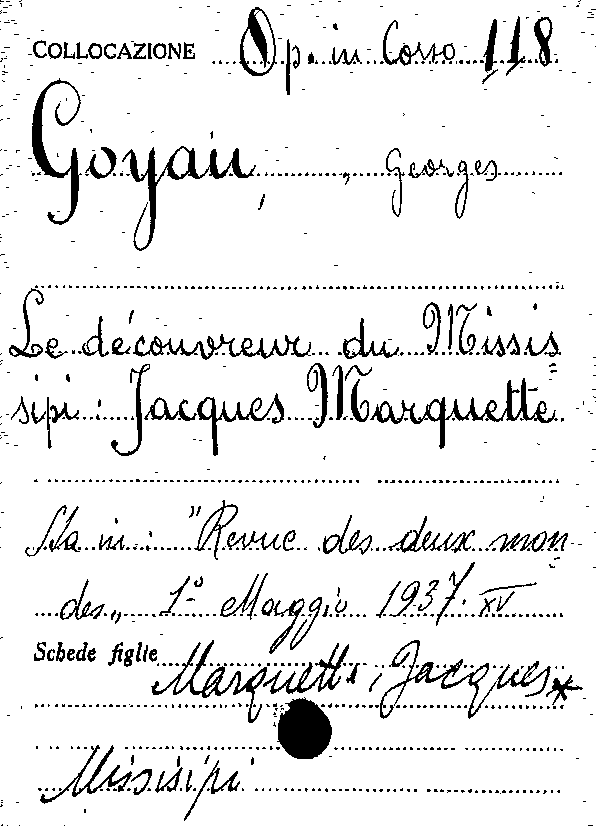 COLLOCAZIONE Op. in Corso 118
Goyau, Georges
Le découvreur du Missis=
sipi : Jacques Marquette
Sta in : "Revue des deux mon=
des„ 1º Maggio 1937. XV
Schede figlie Marquette, Jacques*
Missisipi